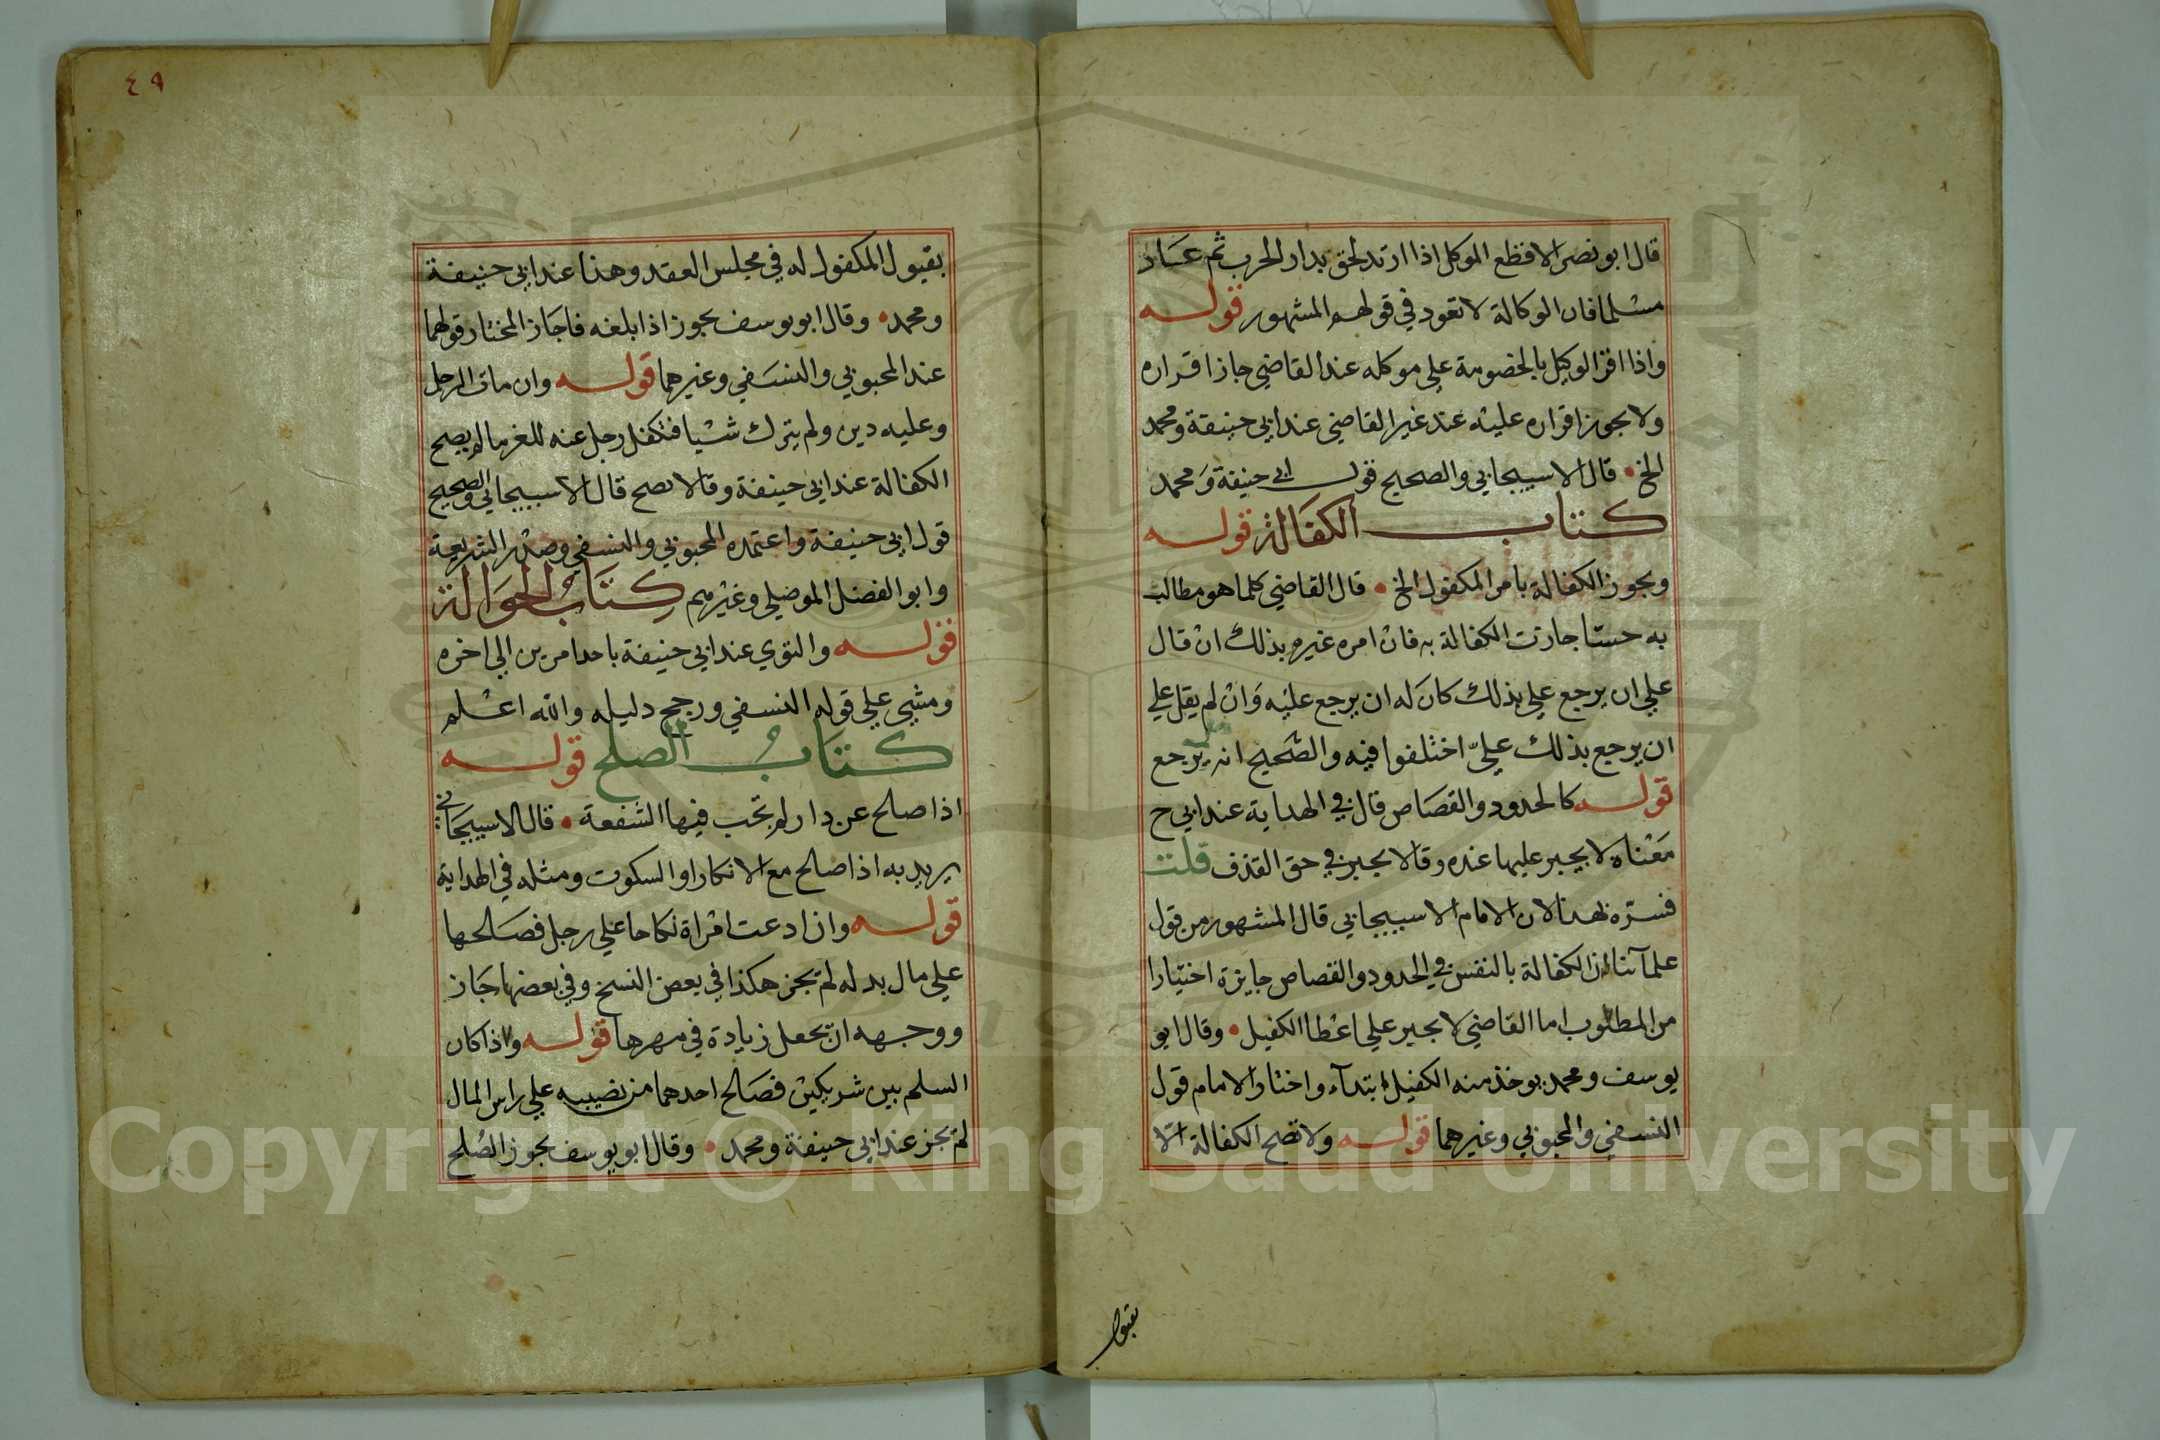 قال ابو نصر الاقطع الموكل اذا ارتد لحق بدار الحرب ثم عاد
مسلما فان الوكالة لا تعود في قولهم المشهور قوله
واذا اقر الوكيل بالخصومة علي موكله عند القاضي جاز اقراره
ولا يجوز اقراره عليه عند غير القاضي عند ابي حنيفة ومحمد
الخ قال الاسبيجابي والصحيح قول ابي حنيفة ومحمد
كتاب الكفالة قوله
ويجوز الكفالة بامر المكفول الخ قال القاضي كلما هو مطالب
به حسا جازت الكفالة به فان امره غيره بذلك ان قال
علي ان يرجع علي بذلك كان له ان يرجع عليه وان لم يقل علي
ان يرجع بذلك علي اختلفوا فيه والصحيح انه يرجع
قوله كالحدود والقصاص قال في الهداية عند ابي ح
معناه لا يجبر عليها عنده وقالا يجبر في حق القذف قلت
فسره بهذا لان الامام الاسبيجابي قال المشهور من قول
علمآئنا ان الكفالة بالنفس في الحدود والقصاص جايزة اختيارا
من المطلوب اما القاضي لا يجبر علي اعطا الكفيل وقال ابو
يوسف ومحمد يوخذ منه الكفيل ابتدآء واختار الامام قول
النسفي والمحبوبي وغيرهما قوله ولا تصح الكفالة الا
بقبول
٤٩
بقبول المكفول له في مجلس العقد وهذا عند ابي حنيفة
ومحمد وقال ابو يوسف يجوز اذا بلغه فاجاز المختار قولهما
عند المحبوبي والنسفي وغيرهما قوله وان مات الرجل
وعليه دين ولم يترك شيا فتكفل رجل عنه للغرما لم يصح
الكفالة عند ابي حنيفة وقالا تصح قال الاسبيجابي والصحيح
قول ابي حنيفة واعتمده المحبوبي والنسفي وصدر الشريعة
وابو الفضل الموصلي وغيرهم كتاب الحوالة
قوله والتوي عند ابي حنيفة باحد امرين الي اخره
ومشي علي قوله النسفي ورجح دليله والله اعلم
كتاب الصلح قوله
اذا صالح عن دار لم تجب فيها الشفعة قال الاسبيجابي
يريد به اذا صالح مع الانكار او السكوت ومثله في الهداية
قوله وان ادعت امراة نكاحا علي رجل فصالحها
علي مال بدله لم يجز هكذا في بعض النسخ وفي بعضها جاز
ووجهه ان يجعل زيادة في مهرها قوله واذا كان
السلم بين شريكين فصالح احدهما من نصيبه علي راس المال
لم يجز عند ابي حنيفة ومحمد وقال ابو يوسف يجوز الصلح
Copyright © King Saud University